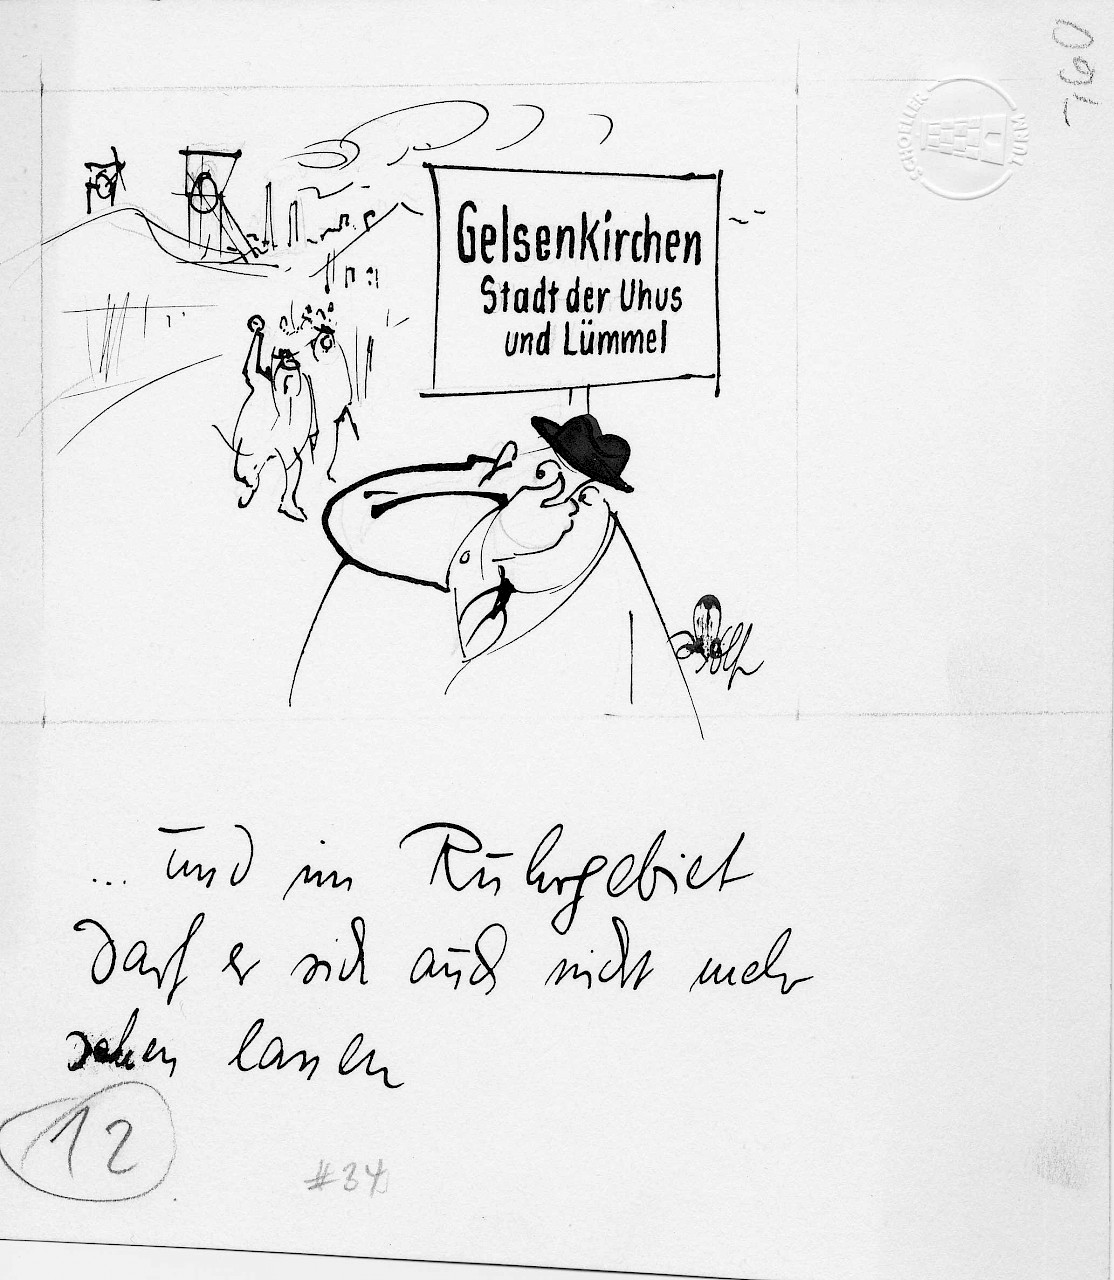 760
SCHOELLER
TURM
Gelsenkirchen
Stadt der Uhus
und Lümmel
Wolf
... und im Ruhrgebiet
darf er sich auch nicht mehr
sehen lassen
12
#34